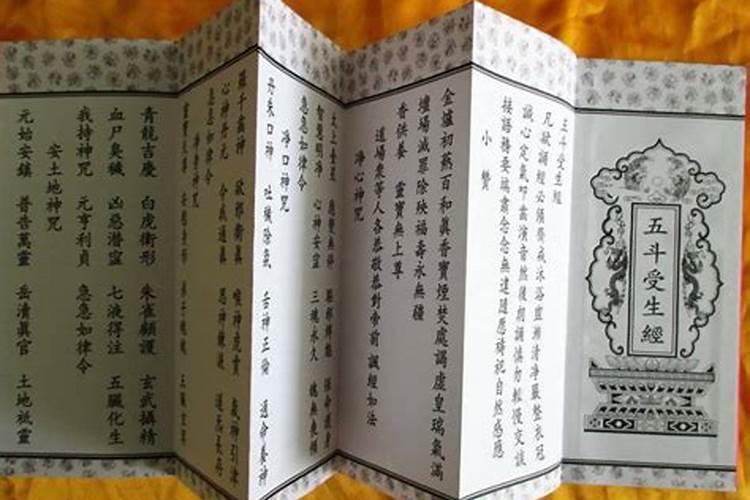 五斗受生經
五斗受生經
凡欲誦經必須齋戒沐浴盥漱清淨嚴整衣冠
誠心定氣叩齒演音然後朗誦慎勿輕慢交談
接語務要端肅念念無違隨應禱祀自然感應
小讚
金爐初爇百和眞香寶煙焚處謁虛皇瑞氣滿
壇場滅罪除殃福壽永無疆
香供養 靈寶無上尊
道場衆等人各恭敬恭對帝前 誦經如法
淨心神咒
太上臺星 應變無停 驅邪縛魅 保命護身
智慧明淨 心神安寧 三魂永久 魄無喪傾
急急如律令
淨口神咒
丹朱口神 吐穢除氛 舌神正倫 通命養神
羅千齒神 卻邪衛眞 喉神虎賁 氣神引津
心神丹元 令我通眞 思神鍊液 道炁長存
急急如律令
淨身神咒
靈寶天尊 安慰身形 弟子魂魄 五臟玄冥
青龍吉慶 白虎衛形 朱雀顧護 玄武攝精
血尸臭穢 凶惡潛窪 七液得注 五臟化生
我持神咒 元亨利貞 急急如律令
安土地神咒
元始安鎮 普告萬靈 岳清眞官 土地祗靈